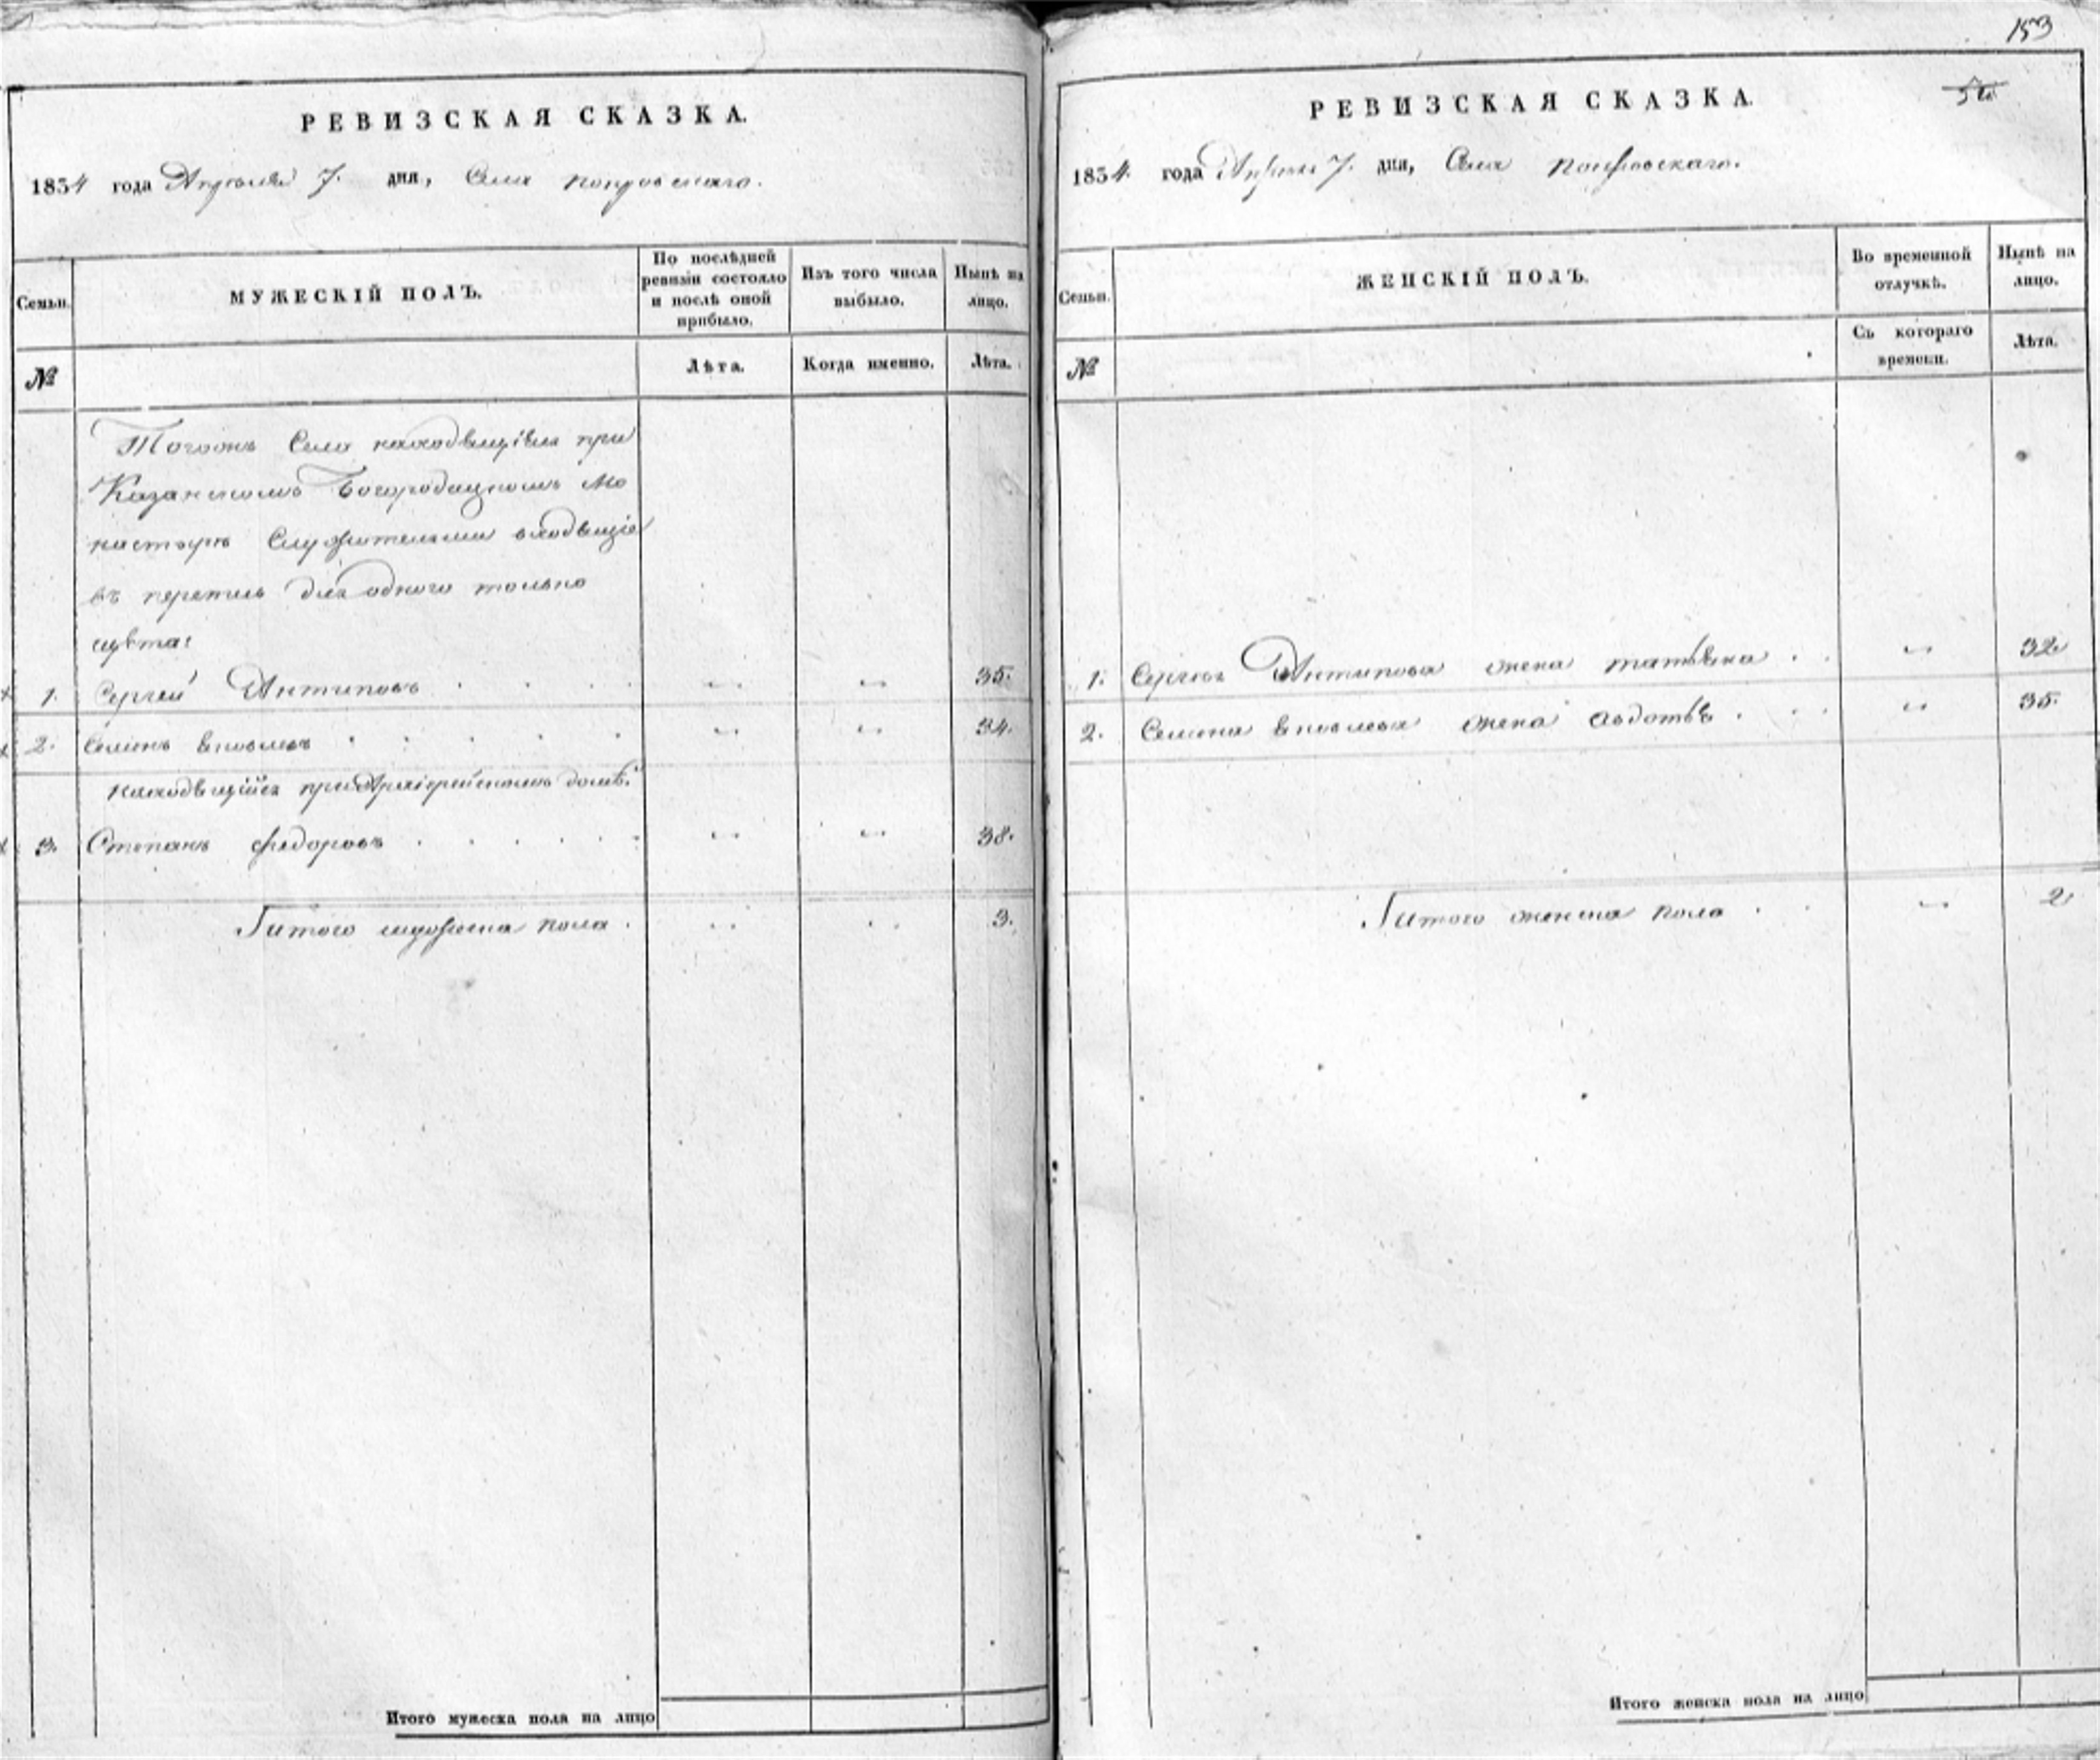 РЕВИЗСКАЯ СКАЗКА.
1834 года Апреля 7. дня, Села Покровскаго.
Семьи.
МУЖЕСКІЙ ПОЛЪ.
По послѣдней ревизіи состояло и послѣ оной прибыло.
Изъ того числа выбыло.
Нынѣ на лицо.
№
Лѣта.
Когда именно.
Лѣта.
Тогожъ Села находящіяся при
Казанскомъ Богородицкомъ Мо
настырѣ Служителями входящіе
въ перепись для одного только
щета:
1. Сергей Антиповъ 35.
2. Семенъ Яковлевъ 34.
находящійся при Архіерейскомъ домѣ.
3. Степанъ Федоровъ 38.
Итого мужеска пола 3.
Итого мужеска пола на лицо
153
РЕВИЗСКАЯ СКАЗКА.
1834 года Апреля 7. дня, Села Покровскаго.
Семьи.
ЖЕНСКІЙ ПОЛЪ.
Во временной отлучкѣ.
Нынѣ на лицо.
№
Съ котораго времени.
Лѣта.
1. Сергея Антипова жена Татьяна 32
2. Семена Яковлева жена Авдотья 35.
Итого женска пола 2
Итого женска пола на лицо